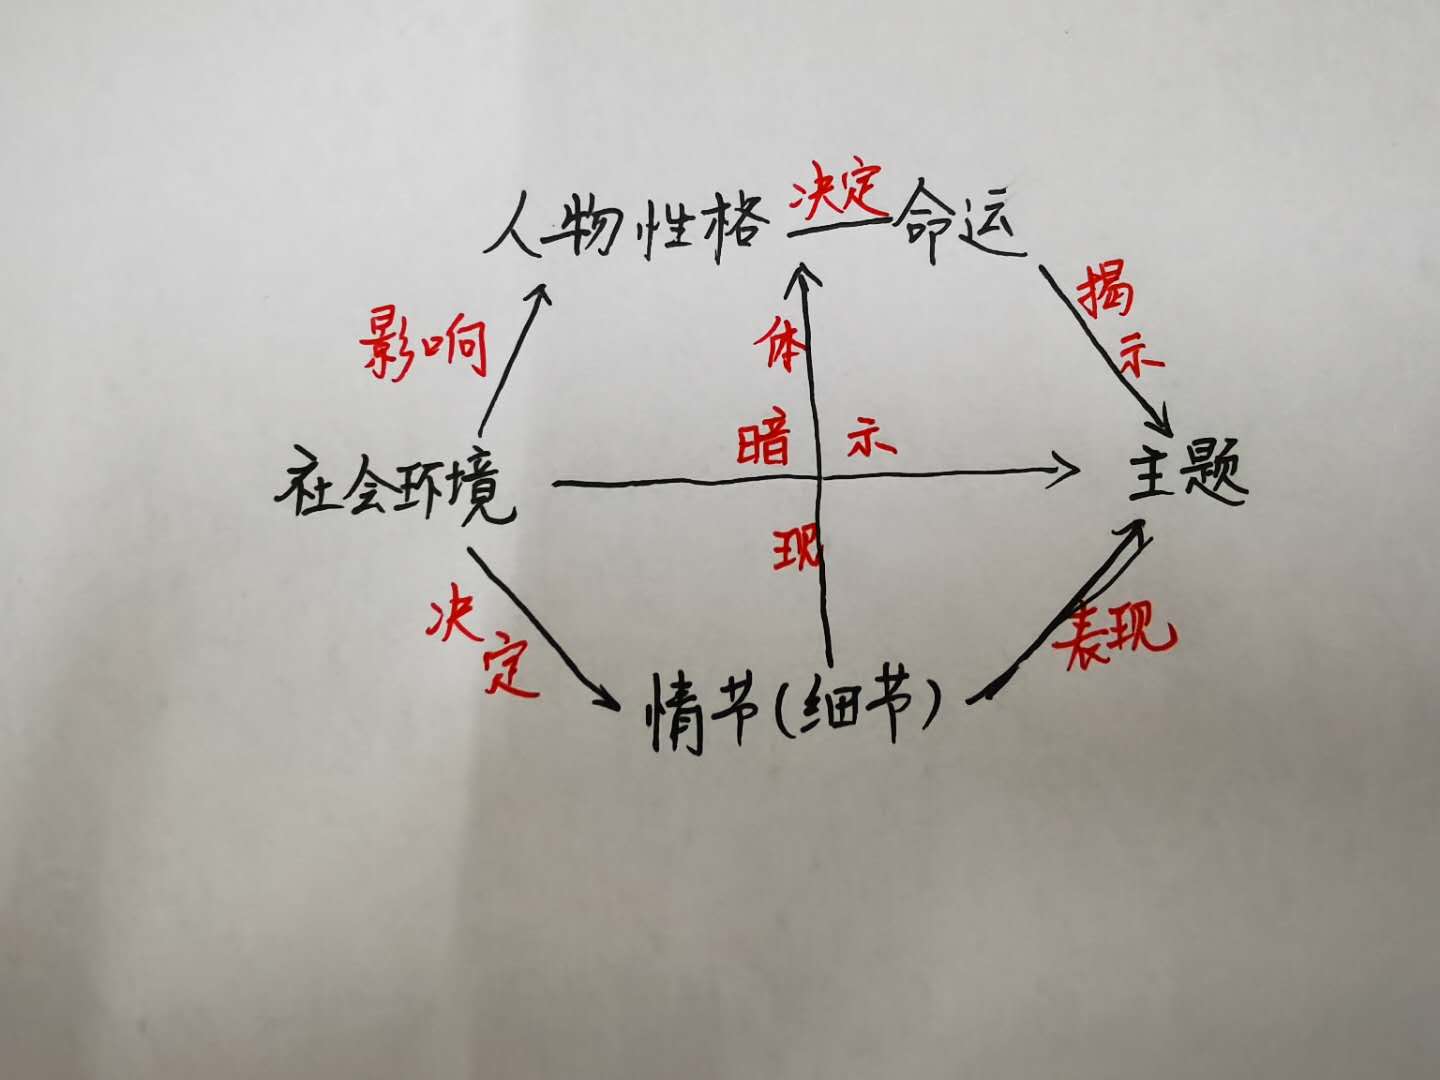 人物性格 决定 命运
影响
揭示
体现
暗示
社会环境
主题
决定
表现
情节(细节)